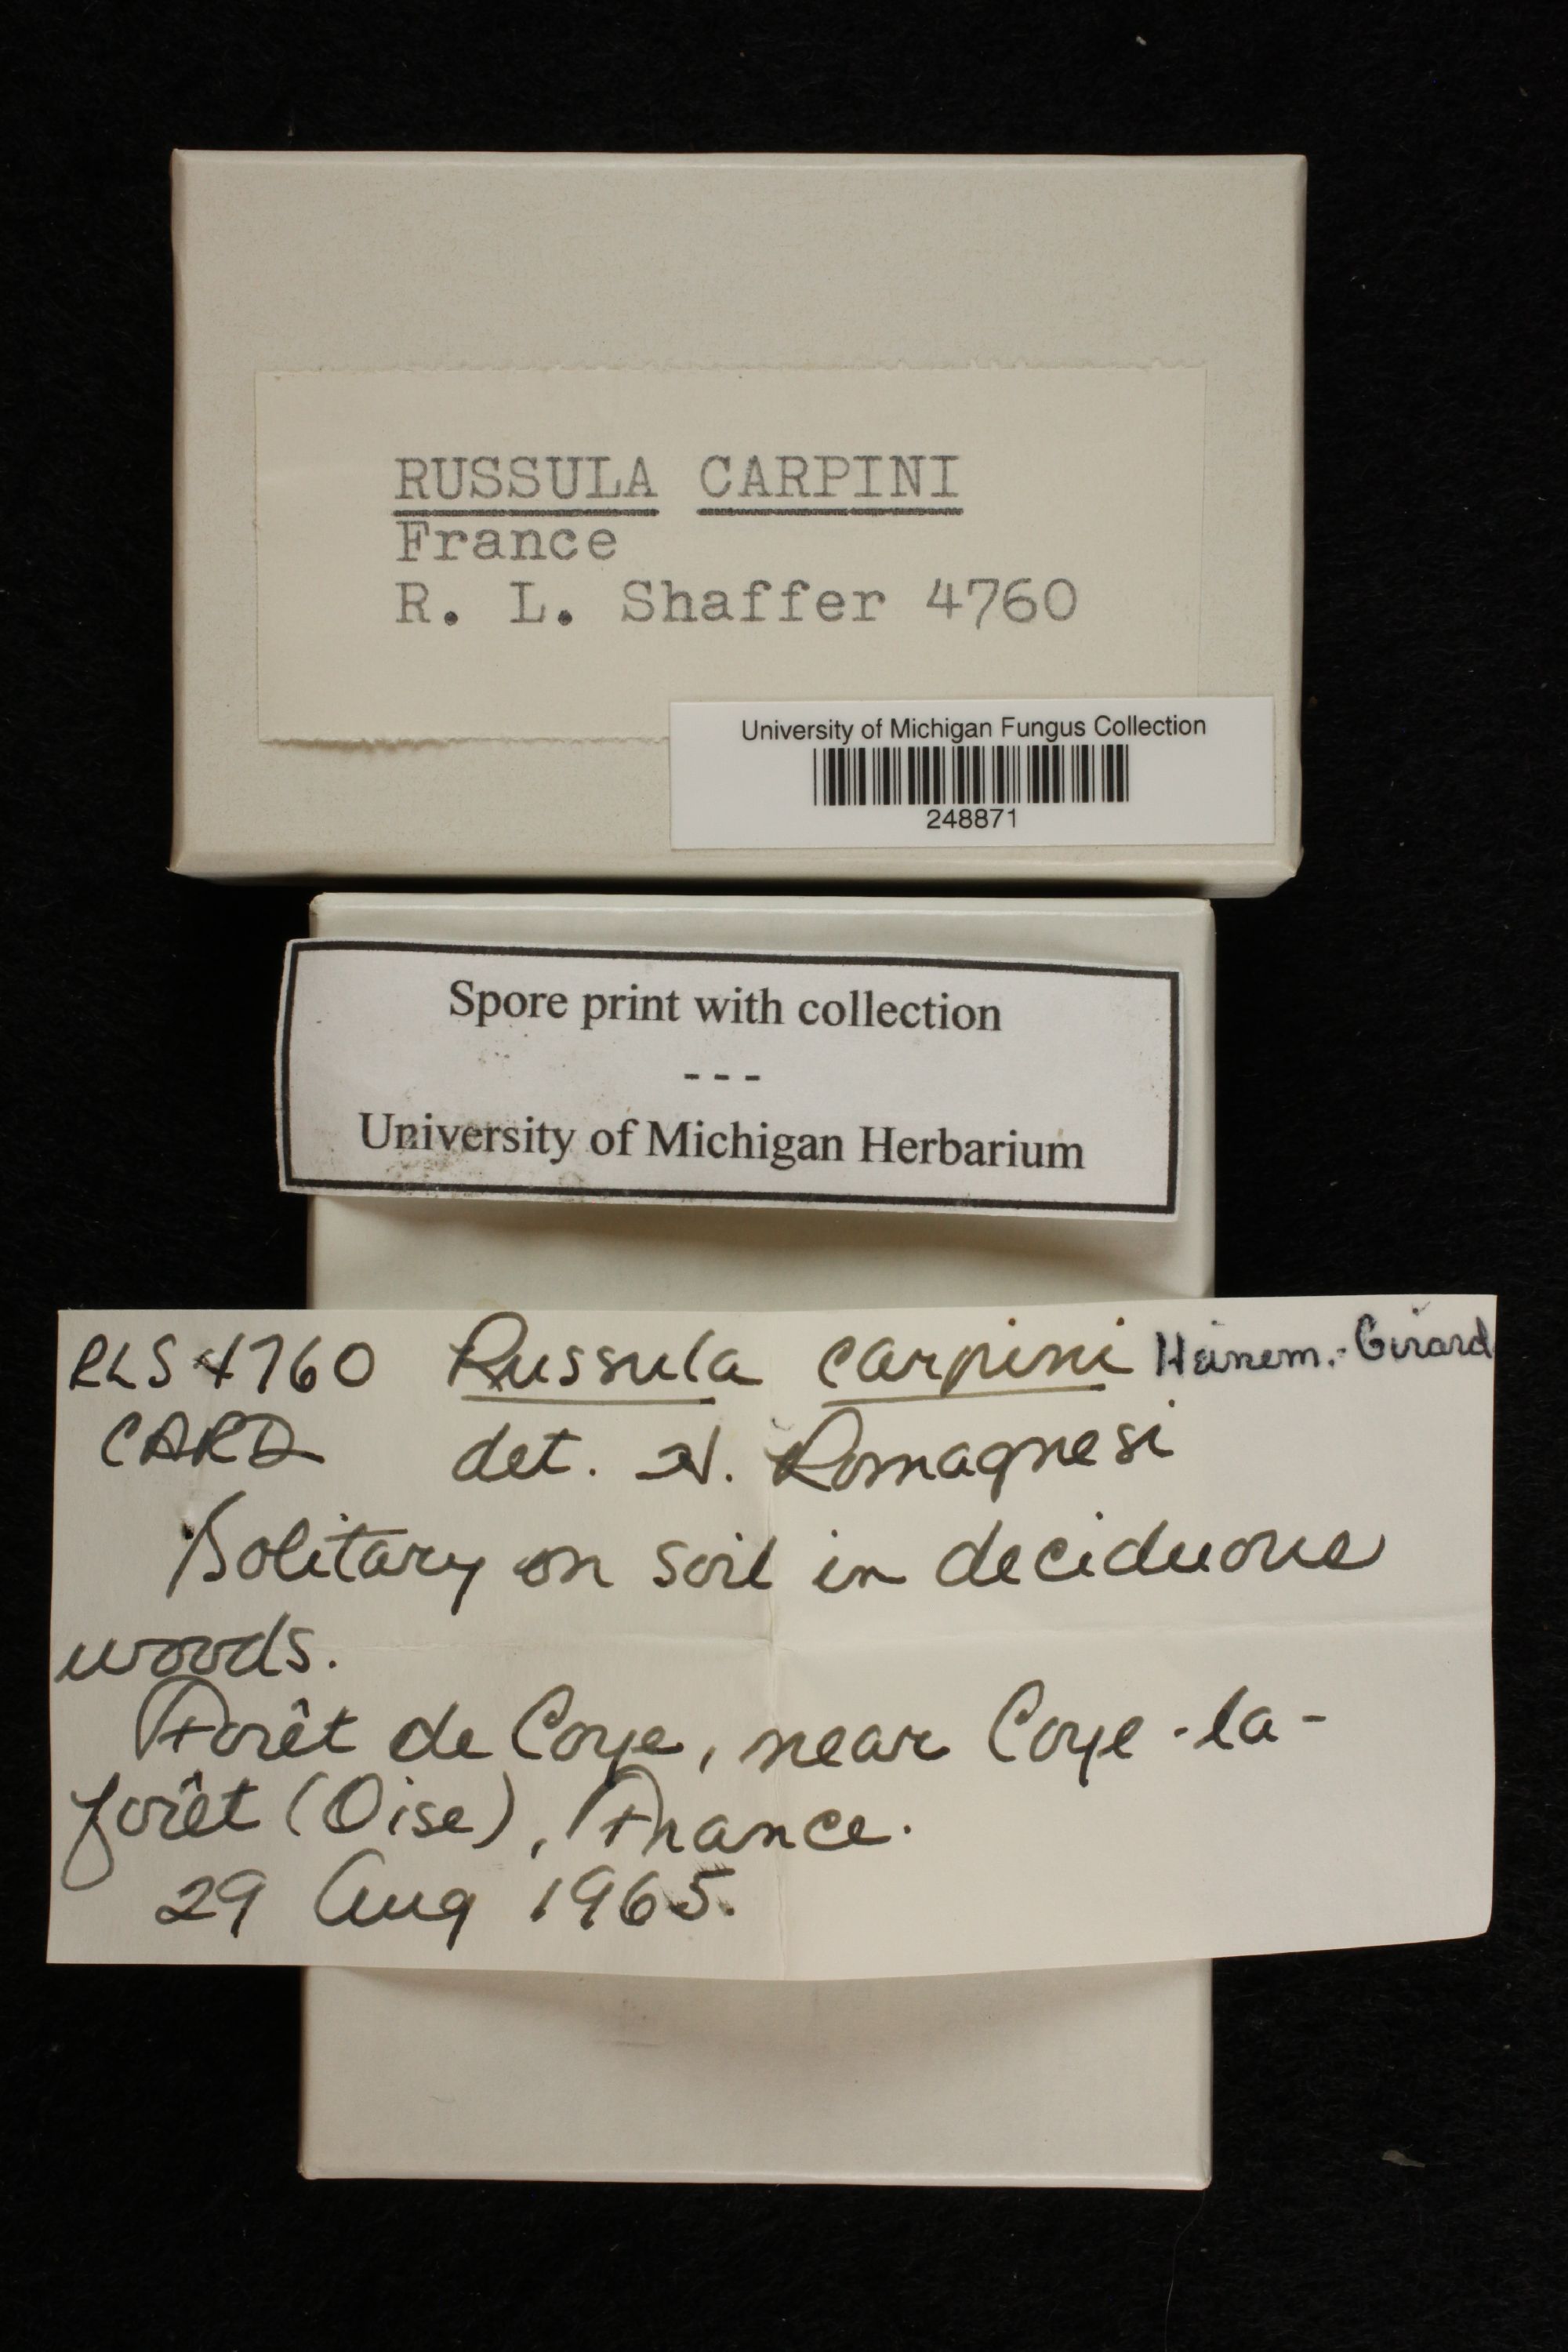 RUSSULA CARPINI
France
R. L. Shaffer 4760
University of Michigan Fungus Collection
248871
Spore print with collection
---
University of Michigan Herbarium
RLS 4760 Russula carpini Heinem.-Girard
CARD det. H. Romagnesi
Solitary on soil in deciduous
woods.
Forêt de Coye, near Coye-la-
forêt (Oise), France.
29 Aug 1965.